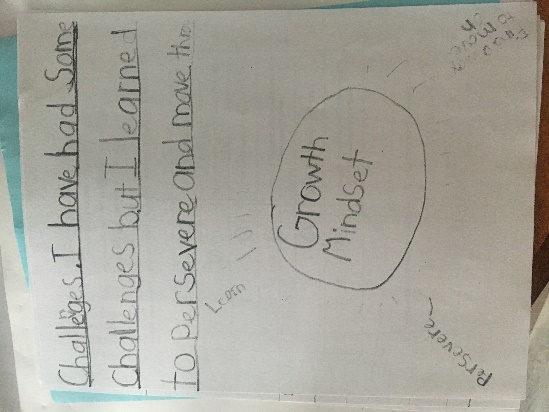 Challenges. I have had Some
Challenges but I learned
to persevere and move thro
Learn
Growth
Mindset
Persevere